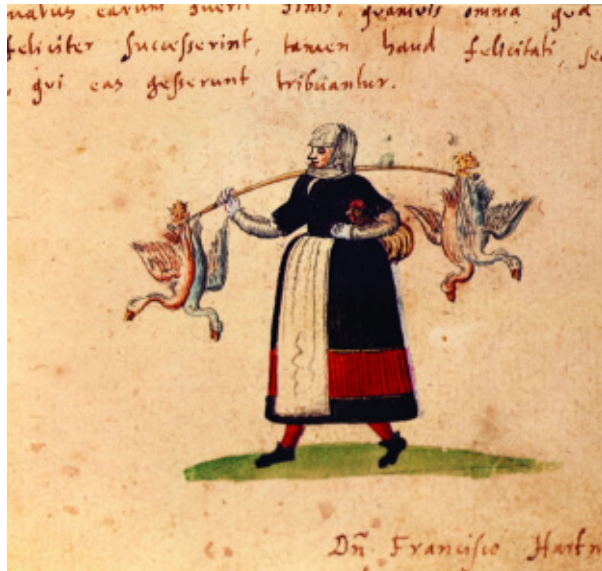 earum fueri finis, quamvis omnia qua
feliciter successerint, tamen haud felicitati, sed
, qui eas gesserunt, tribuantur.
Dñ Francisco Hartm